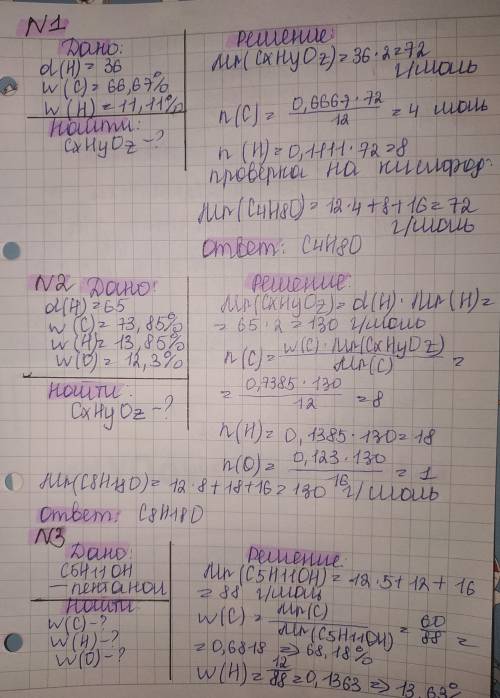 N1
Дано:
d(H) = 36
w(C) = 66,67%
w(H) = 11,11%
Найти:
CxHyOz - ?
Решение:
Mr(CxHyOz) = 36 · 2 = 72
г/моль
n(C) = 0,6667 · 72 / 12 = 4 моль
n(H) = 0,1111 · 72 = 8
проверка на кислород:
Mr(C4H8O) = 12 · 4 + 8 + 16 = 72
г/моль
Ответ: C4H8O
N2 Дано:
d(H) = 65
w(C) = 73,85%
w(H) = 13,85%
w(O) = 12,3%
Найти:
CxHyOz - ?
Решение:
Mr(CxHyOz) = d(H) · Mr(H) =
= 65 · 2 = 130 г/моль
n(C) = w(C) · Mr(CxHyOz) / Mr(C) =
= 0,7385 · 130 / 12 = 8
n(H) = 0,1385 · 130 = 18
n(O) = 0,123 · 130 / 16 = 1
Mr(C8H18O) = 12 · 8 + 18 + 16 = 130 г/моль
Ответ: C8H18O
N3
Дано:
C5H11OH
- пентанол
Найти:
w(C) - ?
w(H) - ?
w(O) - ?
Решение:
Mr(C5H11OH) = 12 · 5 + 12 + 16
= 88 г/моль
w(C) = Mr(C) / Mr(C5H11OH) = 60 / 88 =
= 0,6818 => 68,18%
w(H) = 12 / 88 = 0,1363 => 13,63%